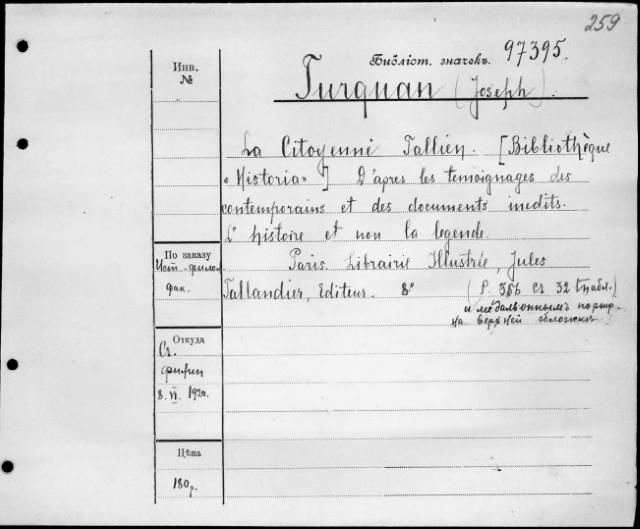 259
Библіот. значекъ. 97395.
Инв.
№
Turquan (Joseph).
La Citoyenne Tallien. [Bibliothèque
«Historia»] D'après les temoignages des
contemporains et des documents inedits.
L'histoire et non la legende.
По заказу
Ист.-филол.
фак.
Paris. Librairie Illustrée, Jules
Tallandier, Editeur. 8°
(P. 356 съ 32 табл.)
и медальоннымъ портр.
на верхней обложке
Откуда
Ст.
8. VI. 192
Цѣна
180 р.